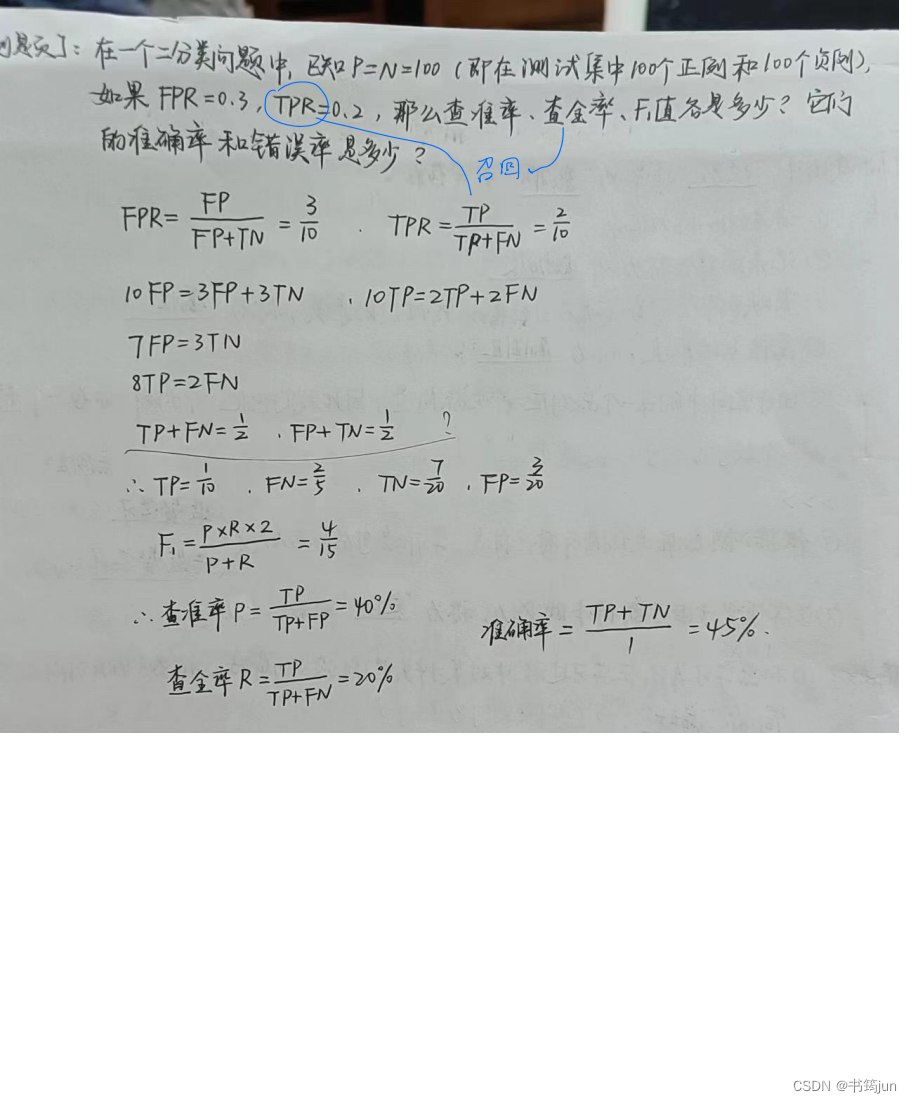 在一个二分类问题中,已知P=N=100(即在测试集中100个正例和100个负例),
如果FPR=0.3,TPR=0.2,那么查准率、查全率、F₁值各是多少?它们
的准确率和错误率是多少?
召回
FPR=FP/(FP+TN)=3/10 . TPR=TP/(TP+FN)=2/10
10FP=3FP+3TN , 10TP=2TP+2FN
7FP=3TN
8TP=2FN
TP+FN=1/2 , FP+TN=1/2 ?
∴TP=1/10 , FN=2/5 , TN=7/20 , FP=3/20
F₁=(P×R×2)/(P+R)=4/15
∴查准率P=TP/(TP+FP)=40%
准确率=(TP+TN)/1=45%.
查全率R=TP/(TP+FN)=20%
CSDN @书筠jun